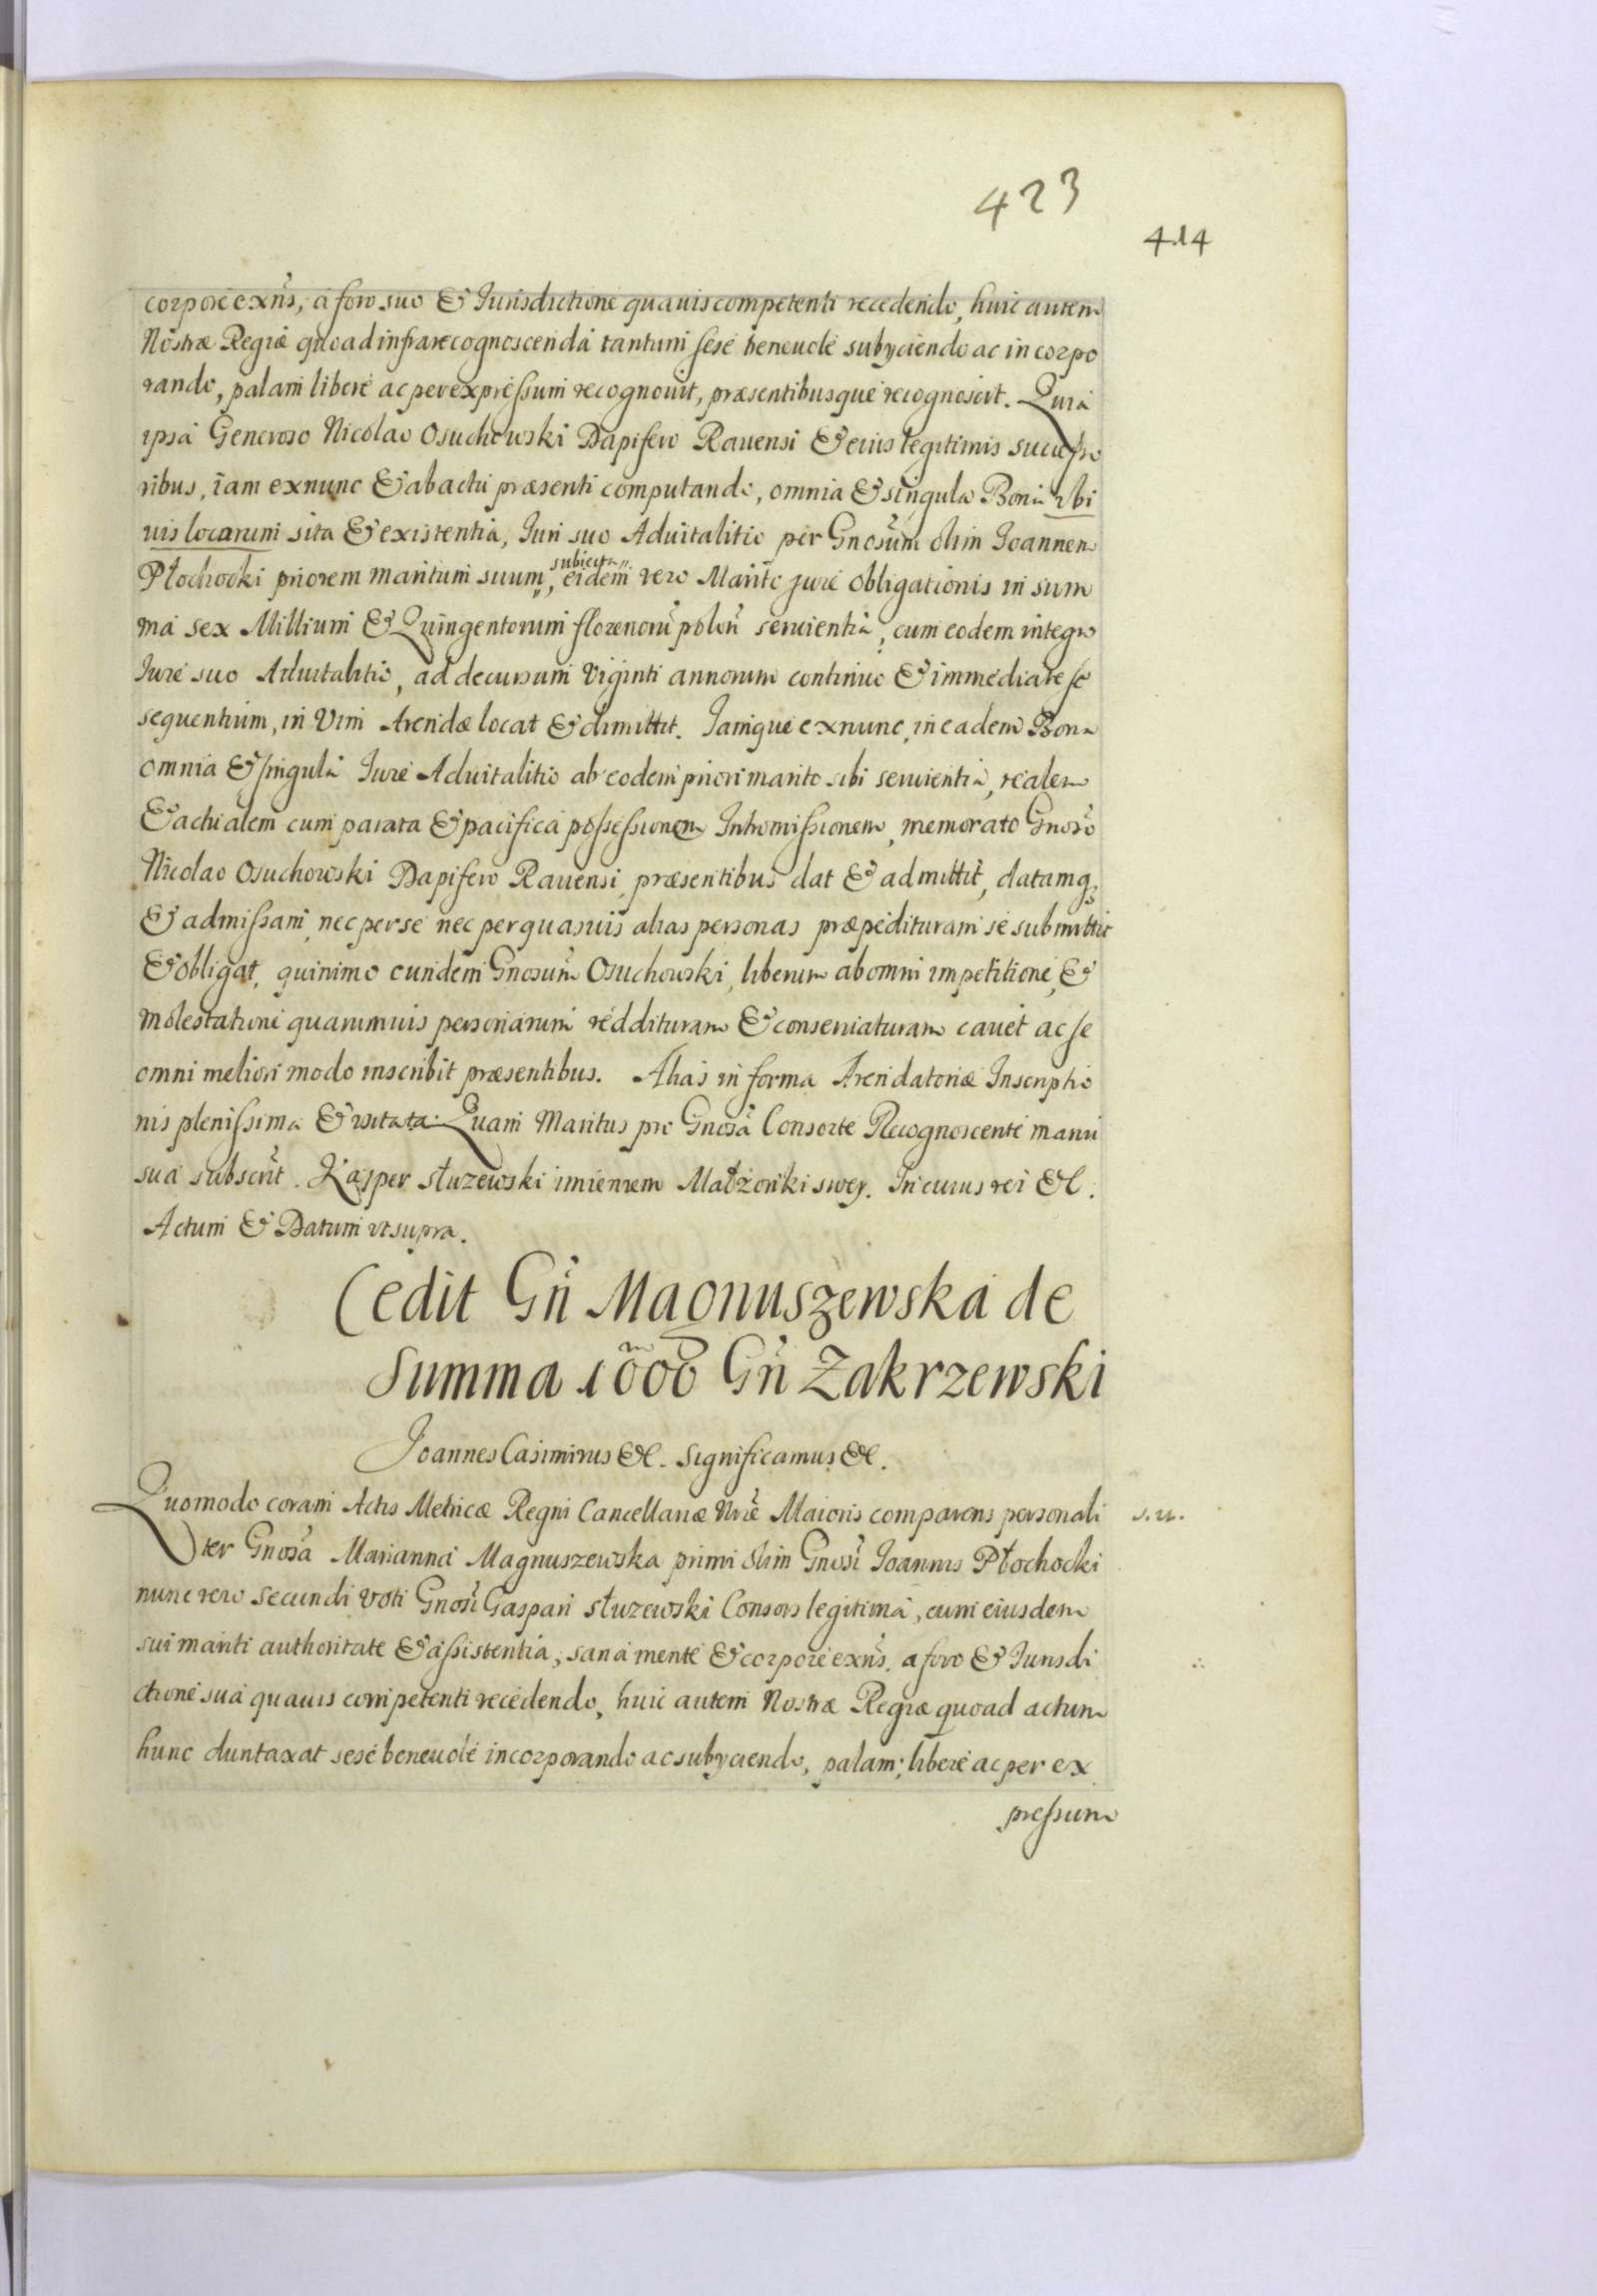 423
414
corpore exn̄s, a foro suo & Jurisdictione quavis competenti recedendo, huic autem
Nostræ Regiæ quoad infrarecognoscenda tantum sese beneuole subyciendo ac incorpo
rando, palam libere ac per expressum recognouit, præsentibusque recognoscit. Quia
ipsa Generoso Nicolao Osuchowski Dapifero Rauensi & eius legitimis succeſso
ribus, iam exnunc & ab actu præsenti computando, omnia & singula Bona ubi
uis locorum sita & existentia, Juri suo Aduitalitio per Gnosum̄ olim Joannem
Płochocki priorem maritum suum subiecta, eidem vero Marito jure obligationis in sum
ma sex Millium & Quingentorum florenorū polon̄ seruientia, cum eodem integro
Jure suo Aduitalitio, ad decursum Viginti annorum continuo & immediate se
sequentium, in Vim Arendæ locat & dimittit. Jamque exnunc, in eadem Bona
omnia & singula Jure Aduitalitio ab eodem priori marito sibi seruientia, realem
& actualem cum parata & pacifica poſseſsionem Intromiſsionem, memorato Gnoso
Nicolao Osuchowski Dapifero Rauensi præsentibus dat & admittit, datamq3
& admiſsam nec per se nec per quasuis alias personas præpedituram se submittit
& obligat, quinimo eundem Gnosum̄ Osuchowski, liberum ab omni impetitione, &
molestatione quarumuis personarum reddituram & conseruaturam cauet ac se
omni meliori modo inscribit præsentibus. Alias in forma Arendatoriæ Inscriptio
nis pleniſsima & usitata. Quam Maritus pro Gnosa Consorte Recognoscente manu
sua subscrīt. Kasper słuzewski imieniem Małżonki swey. In cuius rei &c.
Actum & Datum ut supra.
Cedit Gn̄ Magnuszewska de
Summa 1000 m Gn̄ Zakrzewski
Joannes Casimirus &c. Significamus &c.
Quomodo coram Actis Metricæ Regni Cancellariæ Nrǣ Maioris comparens personali
s. u.
ter Gnosa Marianna Magnuszewska primi olim Gnosi Joannis Płochocki
nunc vero secundi voti Gnosi Gaspari słuzewski Consors legitima, cum eiusdem
sui mariti authoritate & aſsistentia, sana mente & corpore exn̄s, a foro & Jurisdi
ctione sua quauis competenti recedendo, huic autem Nostræ Regiæ quoad actum
hunc duntaxat sese beneuole incorporando ac subyciendo, palam, libere ac per ex
preſsum